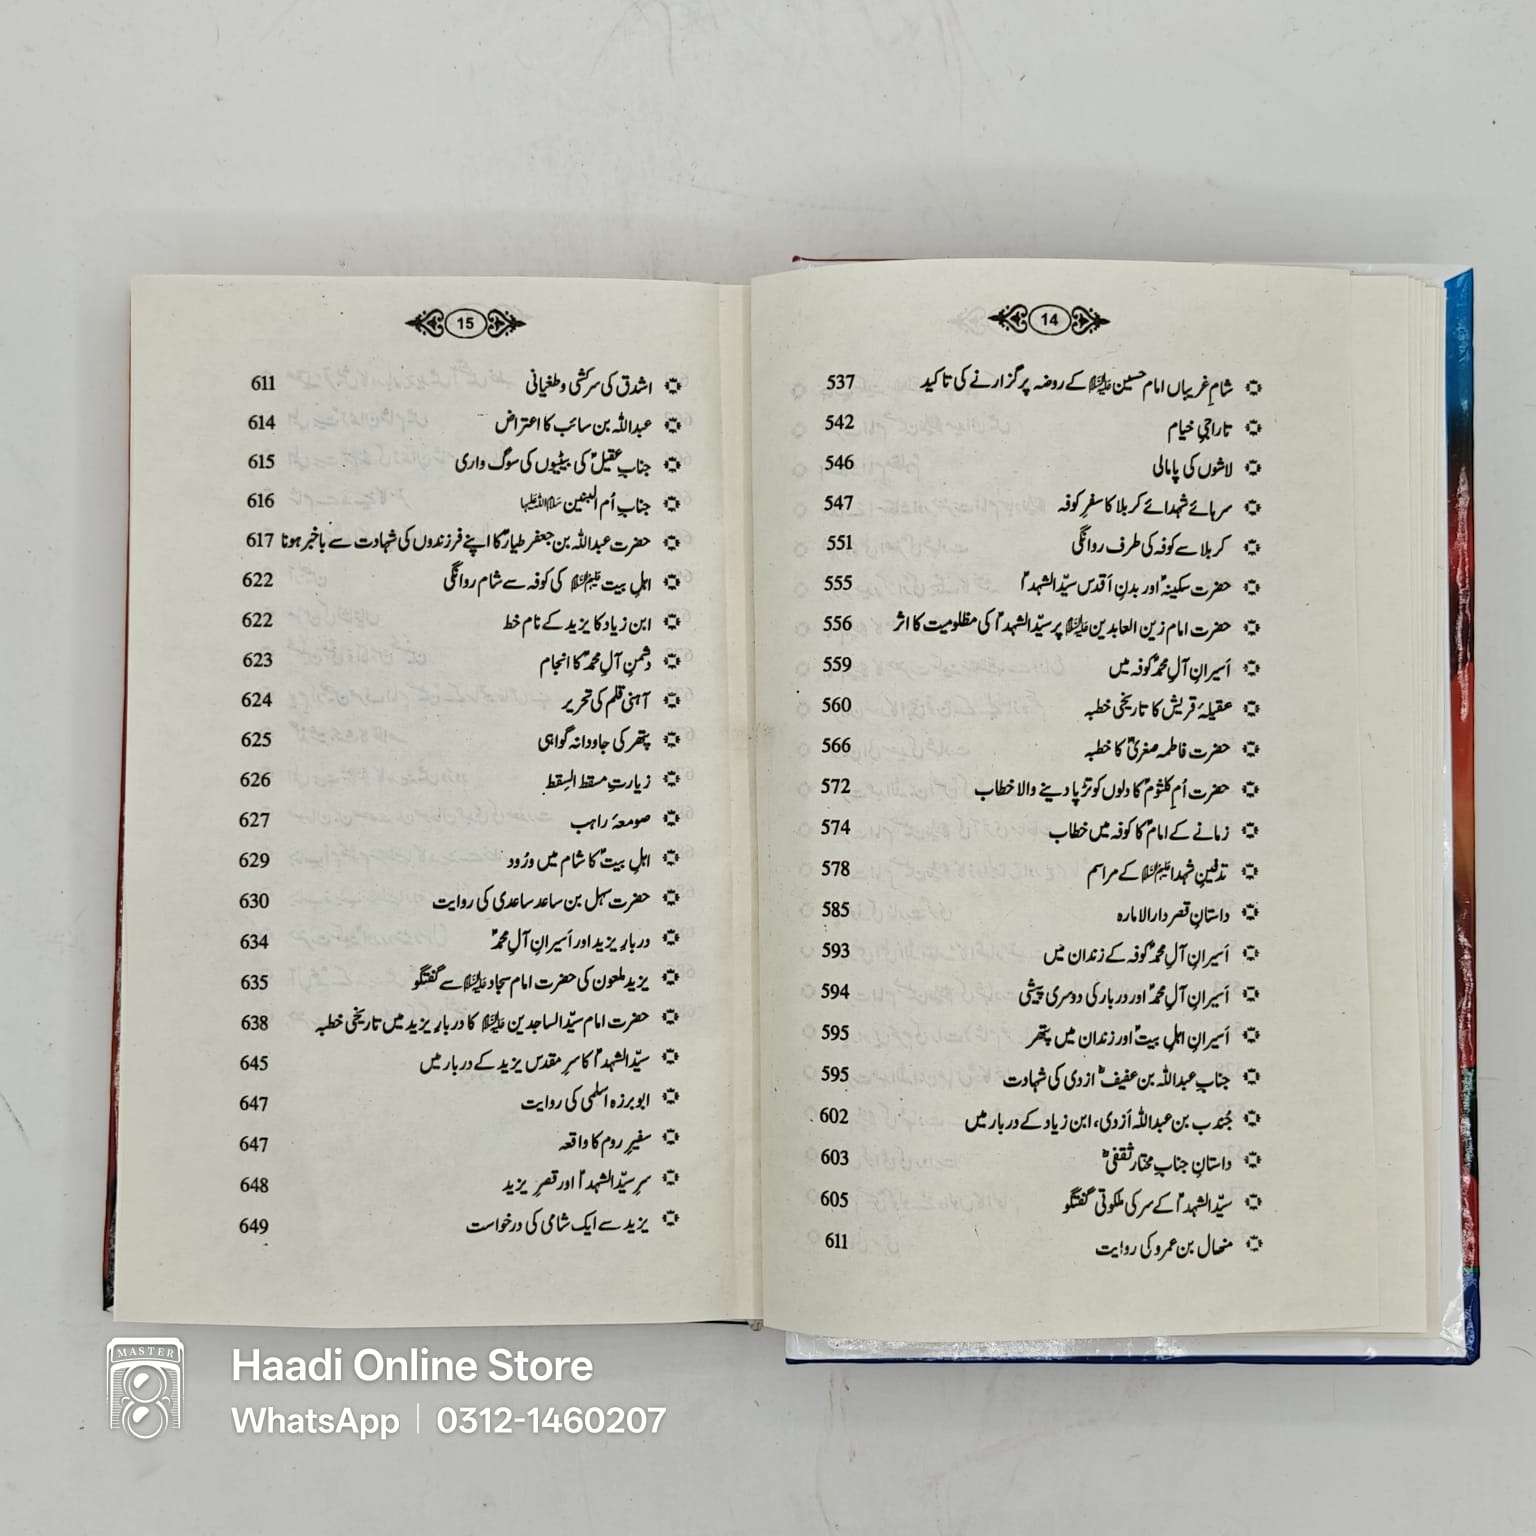 14
شامِ غریباں امام حسین علیہ السلام کے روضہ پر گزارنے کی تاکید 537
تاراجیِ خیام 542
لاشوں کی پامالی 546
سرہائے شہدائے کربلا کا سفرِ کوفہ 547
کربلا سے کوفہ کی طرف روانگی 551
حضرت سکینہؑ اور بدنِ اَقدس سیّد الشہداؑ 555
حضرت امام زین العابدین علیہ السلام پر سیّد الشہداؑ کی مظلومیت کا اثر 556
اَسیرانِ آلِ محمدؐ کوفہ میں 559
عقیلۂ قریش کا تاریخی خطبہ 560
حضرت فاطمہ صغریٰؑ کا خطبہ 566
حضرت اُمِ کلثومؑ کا دلوں کو تڑپا دینے والا خطاب 572
زمانے کے امامؑ کا کوفہ میں خطاب 574
تدفینِ شہدا علیہم السلام کے مراسم 578
داستانِ قصر دارالامارہ 585
اَسیرانِ آلِ محمدؐ کوفہ کے زندان میں 593
اَسیرانِ آلِ محمدؐ اور دربار کی دوسری پیشی 594
اَسیرانِ اہلِ بیتؑ اور زندان میں پتھر 595
جنابِ عبداللہ بن عفیفؓ ازدی کی شہادت 595
جُندب بن عبداللہ اَزدی، ابن زیاد کے دربار میں 602
داستانِ جنابِ مختار ثقفیؓ 603
سیّد الشہداؑ کے سر کی ملکوتی گفتگو 605
منھال بن عمرو کی روایت 611
15
اشدق کی سرکشی و طغیانی 611
عبداللہ بن سائب کا اعتراض 614
جنابِ عقیلؑ کی بیٹیوں کی سوگ واری 615
جنابِ اُم البنین سلام اللہ علیہا 616
حضرت عبداللہ بن جعفر طیارؑ کا اپنے فرزندوں کی شہادت سے باخبر ہونا 617
اہلِ بیت علیہم السلام کی کوفہ سے شام روانگی 622
ابن زیاد کا یزید کے نام خط 622
دشمنِ آلِ محمدؐ کا انجام 623
آہنی قلم کی تحریر 624
پتھر کی جاودانہ گواہی 625
زیارتِ مسقط السِقط 626
صومعۂ راہب 627
اہلِ بیتؑ کا شام میں ورُود 629
حضرت سہل بن ساعد ساعدی کی روایت 630
دربارِ یزید اور اَسیرانِ آلِ محمدؐ 634
یزید ملعون کی حضرت امام سجاد علیہ السلام سے گفتگو 635
حضرت امام سیّد الساجدین علیہ السلام کا دربارِ یزید میں تاریخی خطبہ 638
سیّد الشہداؑ کا سرِ مقدس یزید کے دربار میں 645
ابوبرزہ اسلمی کی روایت 647
سفیرِ روم کا واقعہ 647
سرِ سیّد الشہداؑ اور قصرِ یزید 648
یزید سے ایک شامی کی درخواست 649
MASTER
Haadi Online Store
WhatsApp | 0312-1460207